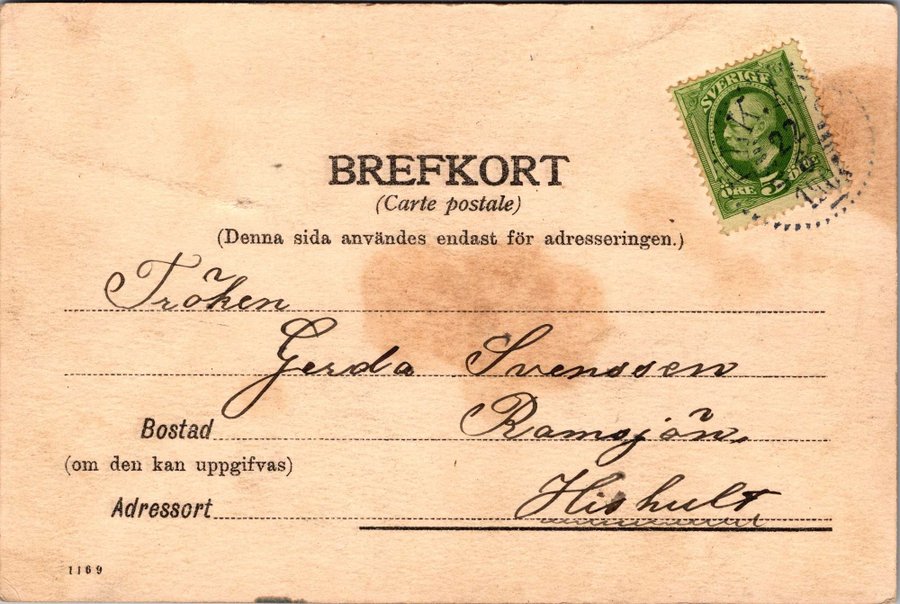 BREFKORT
(Carte postale)
(Denna sida användes endast för adresseringen.)
SVERIGE
ÖRE 5
22
Fröken
Gerda Svenssen
Bostad Ramsjön,
(om den kan uppgifvas)
Adressort Hishult
1169